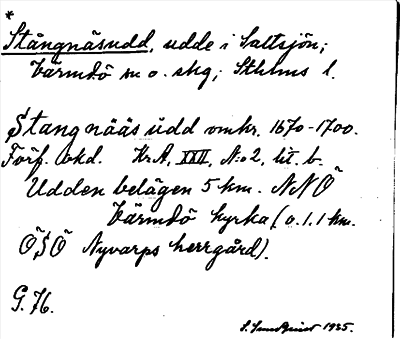 *
Stångnäsudd, udde i Saltsjön;
Värmdö sn o. skg; Sthlms l.
Stangnääs üdd omkr. 1670-1700.
Förf. okd. Kr.A, XXII, N:o 2, lit. b.
Udden belägen 5 km. NNÖ
Värmdö kyrka (o. 1.1 km.
ÖSÖ Nyvarps herrgård).
G. 76.
S. Lundquist 1935.